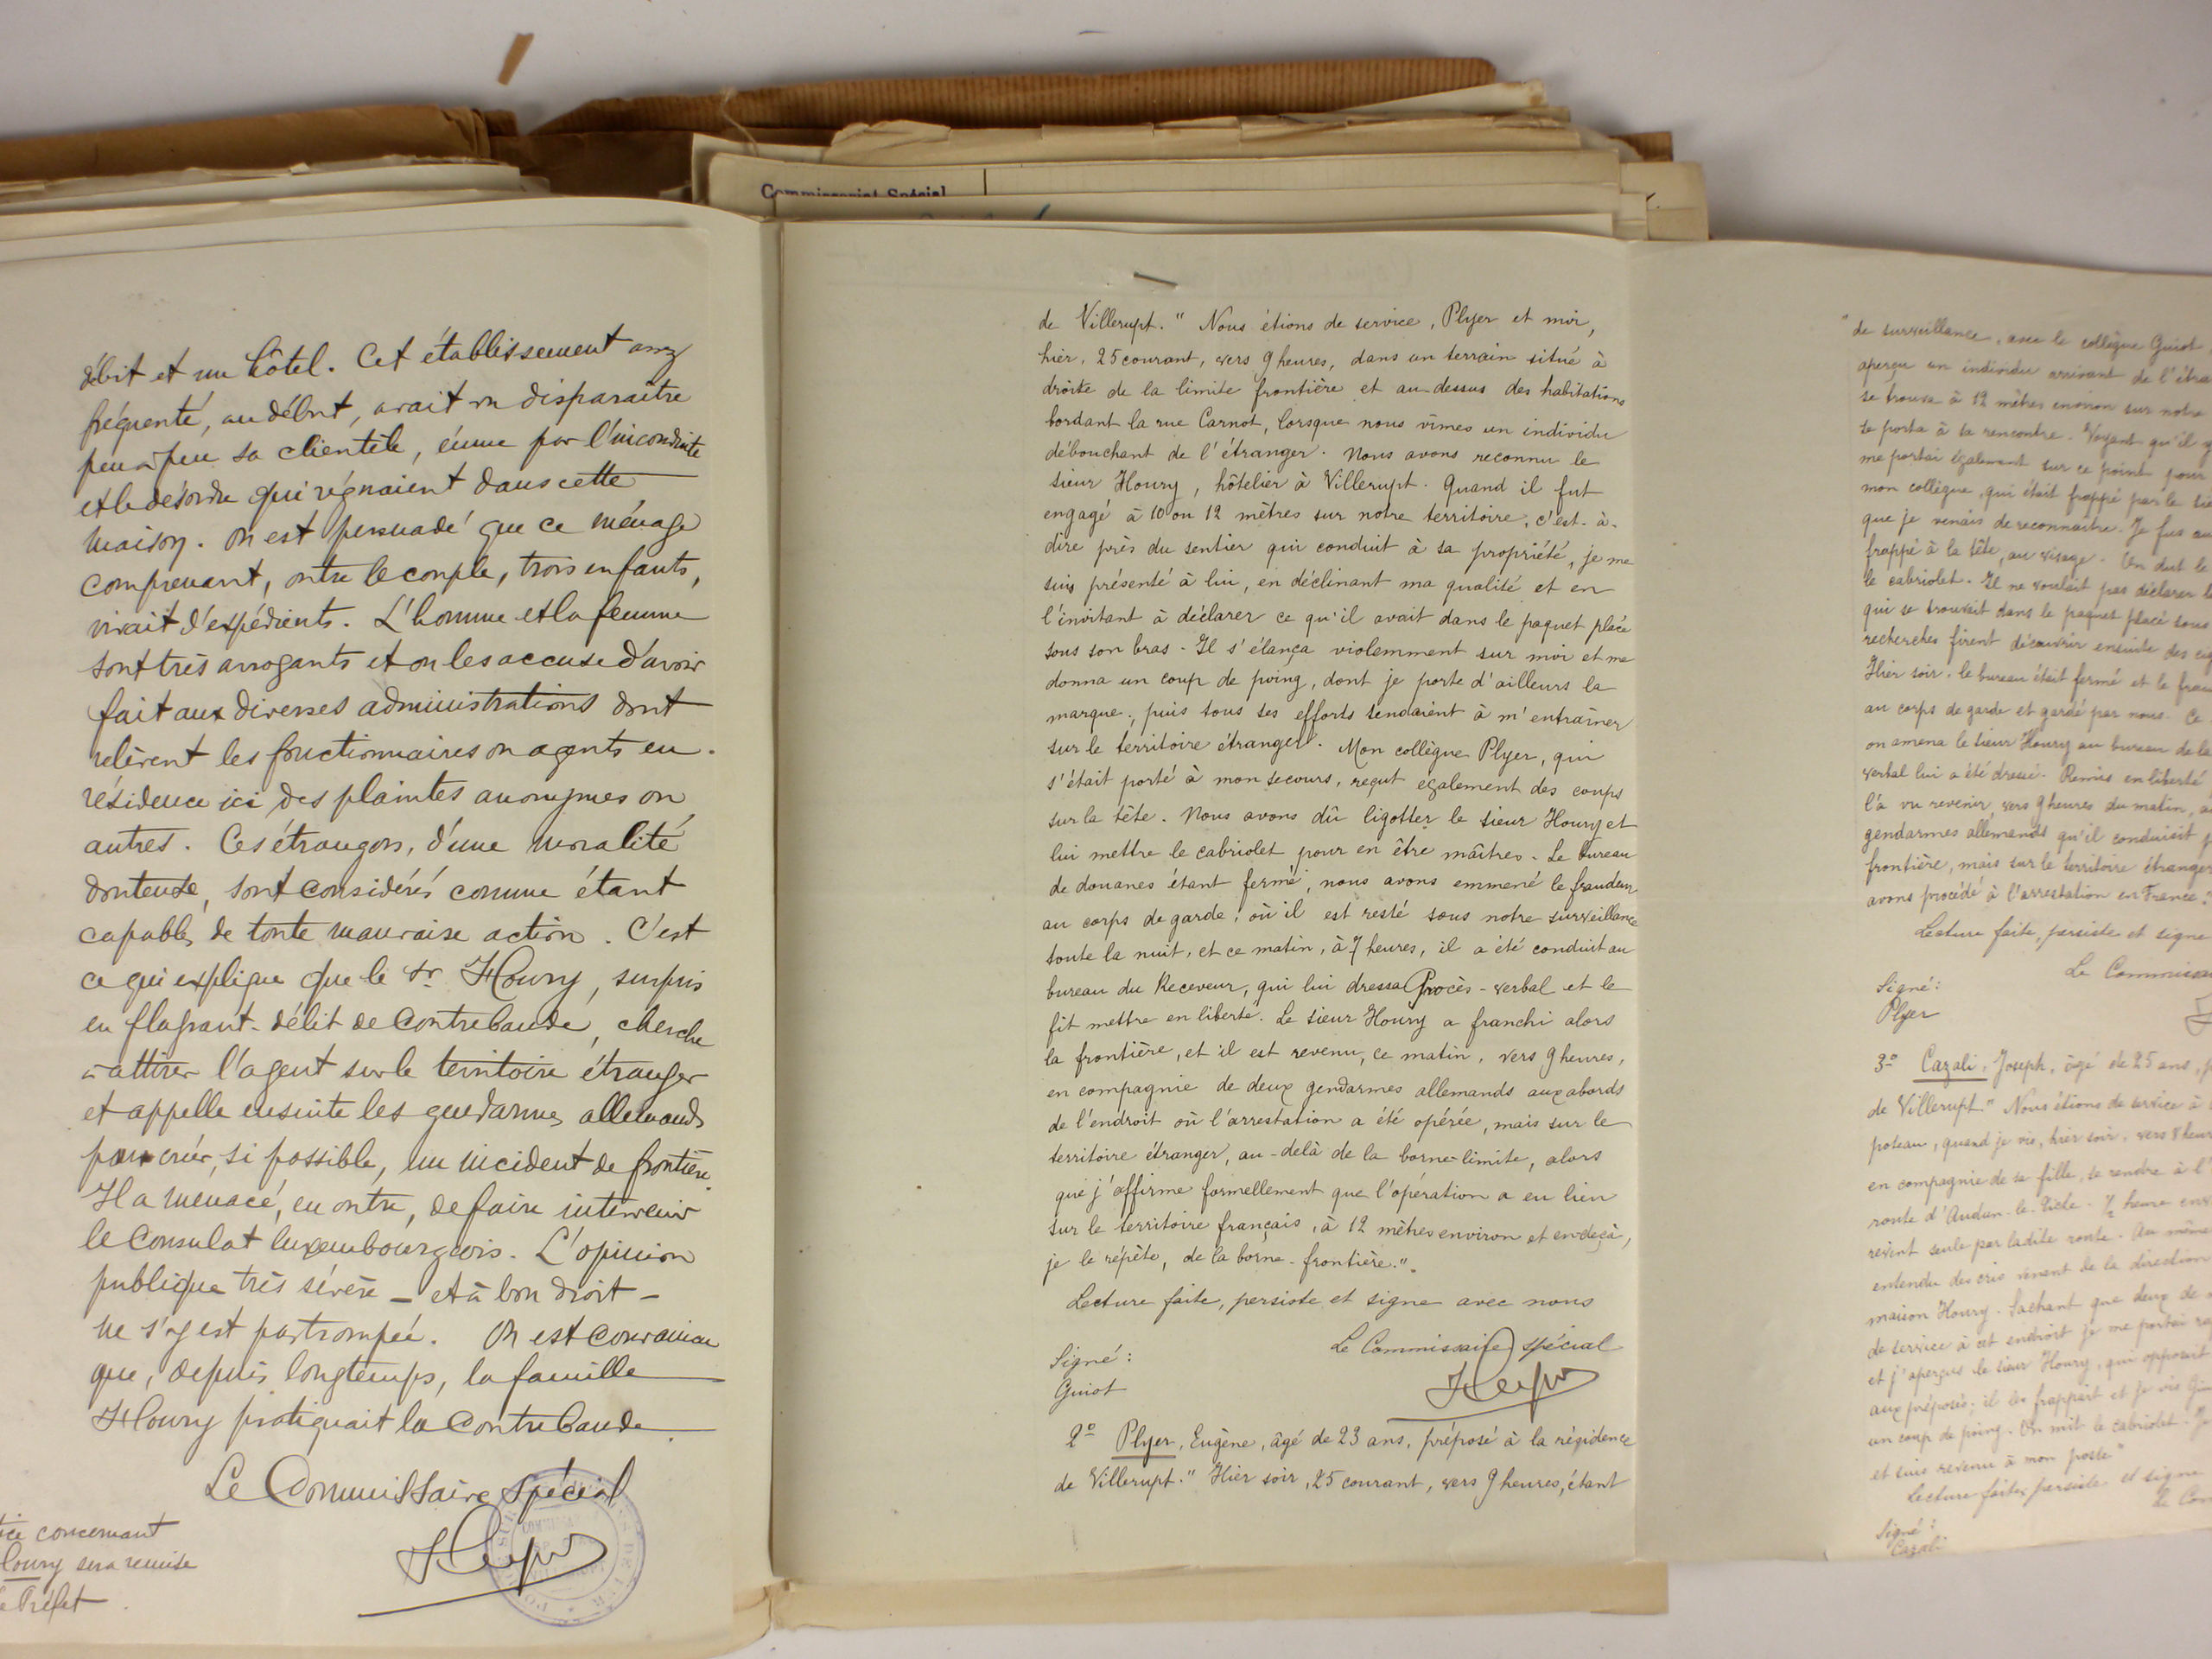 Commissariat Spécial
débit et un hôtel. Cet établissement assez
fréquenté, au début, avait vu disparaître
peu à peu sa clientèle, émue par l'inconduite
et le désordre qui régnaient dans cette
maison. On est persuadé que ce ménage
comprenant, outre le couple, trois enfants,
vivait d'expédients. L'homme et la femme
sont très arrogants et on les accuse d'avoir
fait aux diverses administrations dont
relèvent les fonctionnaires ou agents en
résidence ici des plaintes anonymes ou
autres. Ces étrangers, d'une moralité
douteuse, sont considérés comme étant
capables de toute mauvaise action. C'est
ce qui explique que le Sr Houry, surpris
en flagrant-délit de contrebande, cherche
à attirer l'agent sur le territoire étranger
et appelle ensuite les gendarmes allemands
pour créer, si possible, un incident de frontière.
Il a menacé, en outre, de faire intervenir
le Consulat luxembourgeois. L'opinion
publique très sévère – et à bon droit –
ne s'y est pas trompée. On est convaincu
que, depuis longtemps, la famille
Houry pratiquait la contrebande.
Le Commissaire spécial
concernant
Houry sera remise
Préfet.
de Villerupt. " Nous étions de service, Plyer et moi,
hier, 25 courant, vers 9 heures, dans un terrain situé à
droite de la limite frontière et au-dessus des habitations
bordant la rue Carnot, lorsque nous vîmes un individu
débouchant de l'étranger. Nous avons reconnu le
sieur Houry, hôtelier à Villerupt. Quand il fut
engagé à 10 ou 12 mètres sur notre territoire, c'est-à-
dire près du sentier qui conduit à sa propriété, je me
suis présenté à lui, en déclinant ma qualité et en
l'invitant à déclarer ce qu'il avait dans le paquet placé
sous son bras. Il s'élança violemment sur moi et me
donna un coup de poing, dont je porte d'ailleurs la
marque; puis tous ses efforts tendaient à m'entraîner
sur le territoire étranger. Mon collègue Plyer, qui
s'était porté à mon secours, reçut également des coups
sur la tête. Nous avons dû ligotter le sieur Houry et
lui mettre le cabriolet pour en être maîtres. Le bureau
de douanes étant fermé, nous avons emmené le fraudeur
au corps de garde, où il est resté sous notre surveillance
toute la nuit, et ce matin, à 7 heures, il a été conduit au
bureau du Receveur, qui lui dressa Procès-verbal et le
fit mettre en liberté. Le sieur Houry a franchi alors
la frontière, et il est revenu, ce matin, vers 9 heures,
en compagnie de deux gendarmes allemands aux abords
de l'endroit où l'arrestation a été opérée, mais sur le
territoire étranger, au-delà de la borne-limite, alors
que j'affirme formellement que l'opération a eu lieu
sur le territoire français, à 12 mètres environ et en-deçà,
je le répète, de la borne-frontière."
Lecture faite, persiste et signe avec nous
Le Commissaire spécial
Signé:
Guiot
2º Plyer, Eugène, âgé de 23 ans, préposé à la résidence
de Villerupt. " Hier soir, 25 courant, vers 9 heures, étant
" de surveillance, avec le collègue Guiot,
aperçu un individu arrivant de l'étra
se trouva à 12 mètres environ sur notre
se porta à sa rencontre. Voyant qu'il
me portai également sur ce point pour
mon collègue, qui était frappé par le
que je venais de reconnaître. Je fus au
frappé à la tête, au visage. On dut le
le cabriolet. Il ne voulait pas déclarer
qui se trouvait dans le paquet placé sous
recherches firent découvrir ensuite des
Hier soir, le bureau était fermé et le frau
au corps de garde et gardé par nous. Ce
on amena le sieur Houry au bureau de la
verbal lui a été dressé. Remis en liberté
l'a vu revenir, vers 9 heures du matin,
gendarmes allemands qu'il conduisit
frontière, mais sur le territoire étranger
avons procédé à l'arrestation en France."
Lecture faite, persiste et signe
Le Commissai
Signé:
Plyer
3º Cazali, Joseph, âgé de 25 ans,
de Villerupt. " Nous étions de service à
poteau, quand je vis, hier soir, vers 8 heur
en compagnie de sa fille, se rendre à l'
route d'Audun-le-Tiche. ½ heure env
revint seule par ladite route. Au même
entendu des cris venant de la direction
maison Houry. Sachant que deux de
de service à cet endroit je me portai
et j'aperçus le sieur Houry, qui opposait
aux préposés; il les frappait et je vis
un coup de poing. On mit le cabriolet. Je
et suis revenu à mon poste"
Lecture faite, persiste et signe
Le Com
Signé:
Cazali